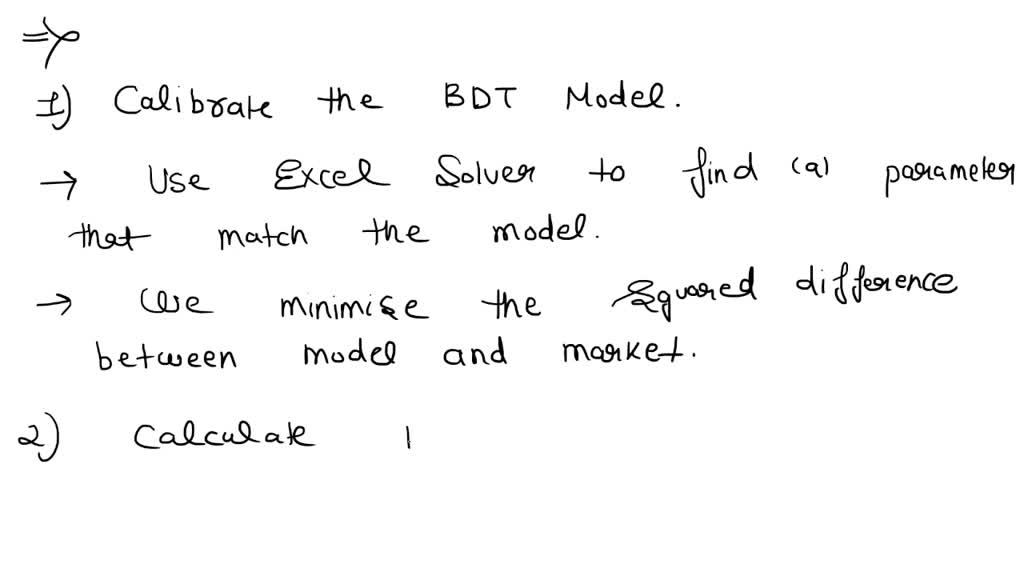 ⇒
1) Calibrate the BDT Model.
→ Use Excel Solver to find (a) parameter
that match the model.
→ We minimise the squared difference
between model and market.
2) Calculate